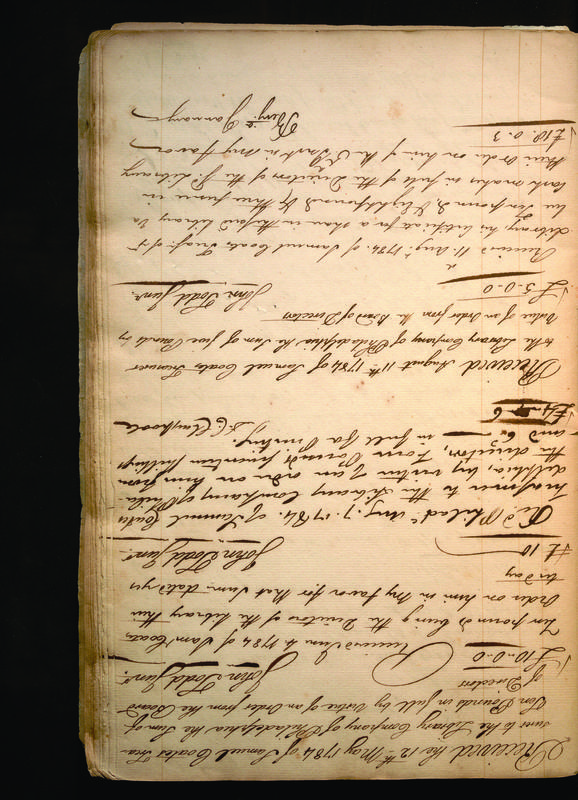 Received the 12th May 1784 of Samuel Coates Trea-
surer to the Library Company of Philadelphia the Sum of
Ten Pounds in full by Virtue of an Order from the Board
of Directors
£10-0-0 John Todd Junr.
Received June 4 1784 of Saml Coates
Ten pounds being the Directors of the Library their
Order on him in my favor for that Sum dated yes
terday
£10 John Todd Junr.
Rec'd Philada Aug. 7. 1784. of Samuel Coates
treasurer to the Library Company of Phila-
delphia, by virtue of an order on him from
the director, Four Pounds, seventeen shillings
and 6d in full for Printing.
£4 6 Claypoole
Received August 11th 1784 of Samuel Coates Treasurer
to the Library Company of Philadelphia the Sum of five Pounds by
Virtue of an Order from the Board of Directors
£5-0-0 John Todd Junr.
Received 11 Augt 1784 of Samuel Coates Treasr of ye
Library his Certificate for a share in the said Library Va
lue Ten pounds, & eight pounds & three pence in
Cash makes in full of the Directors of the sd Library
their Order on him of the Inst in my favor
£18.0.3 Benjn January